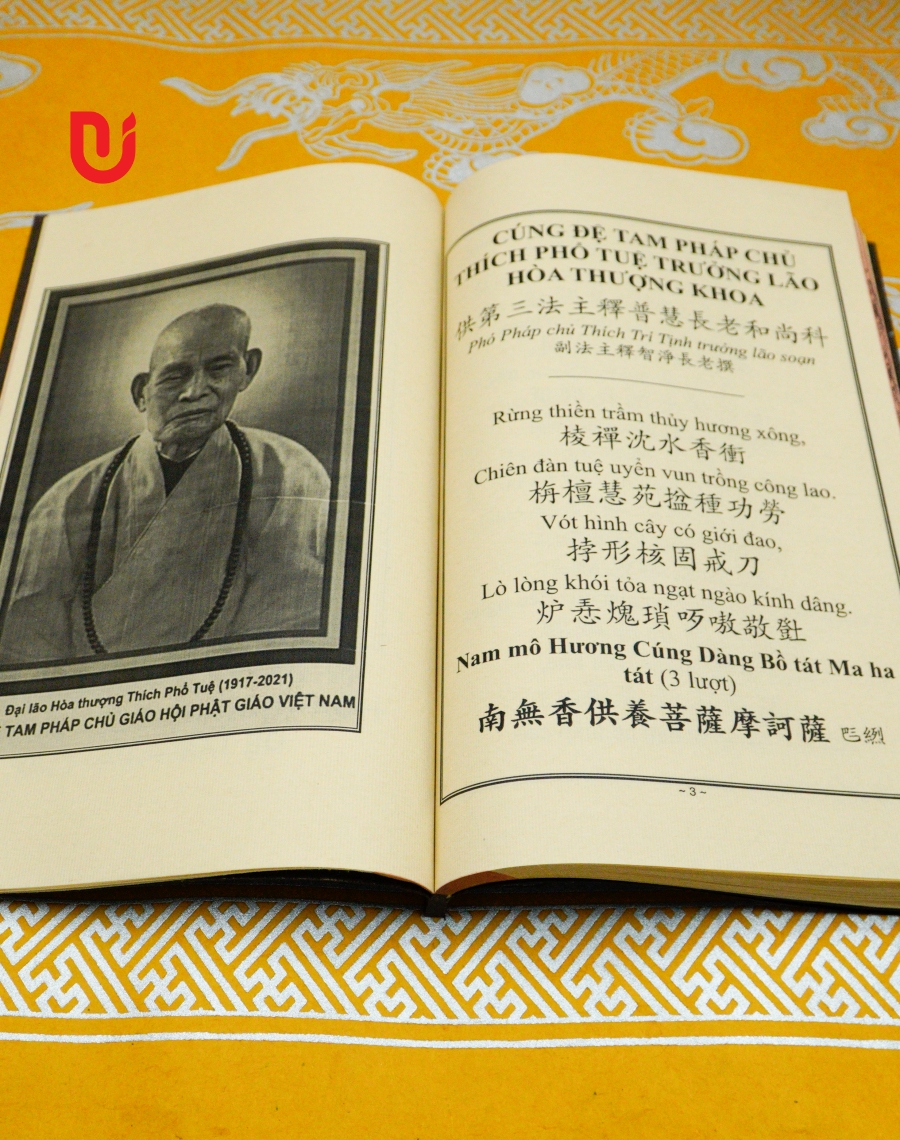 Đại lão Hòa thượng Thích Phổ Tuệ (1917-2021)
TAM PHÁP CHỦ GIÁO HỘI PHẬT GIÁO VIỆT NAM
CÚNG ĐỆ TAM PHÁP CHỦ
THÍCH PHỔ TUỆ TRƯỞNG LÃO
HÒA THƯỢNG KHOA
供第三法主釋普慧長老和尚科
Phó Pháp chủ Thích Trí Tịnh trưởng lão soạn
副法主釋智淨長老撰
Rừng thiền trầm thủy hương xông,
棱禪沈水香衝
Chiên đàn tuệ uyển vun trồng công lao.
栴檀慧苑搵種功勞
Vót hình cây có giới đao,
挬形核固戒刀
Lò lòng khói tỏa ngạt ngào kính dâng.
炉𢚸煙瑣㖇嗷敬𤼸
Nam mô Hương Cúng Dàng Bồ tát Ma ha
tát (3 lượt)
南無香供養菩薩摩訶薩
~ 3 ~